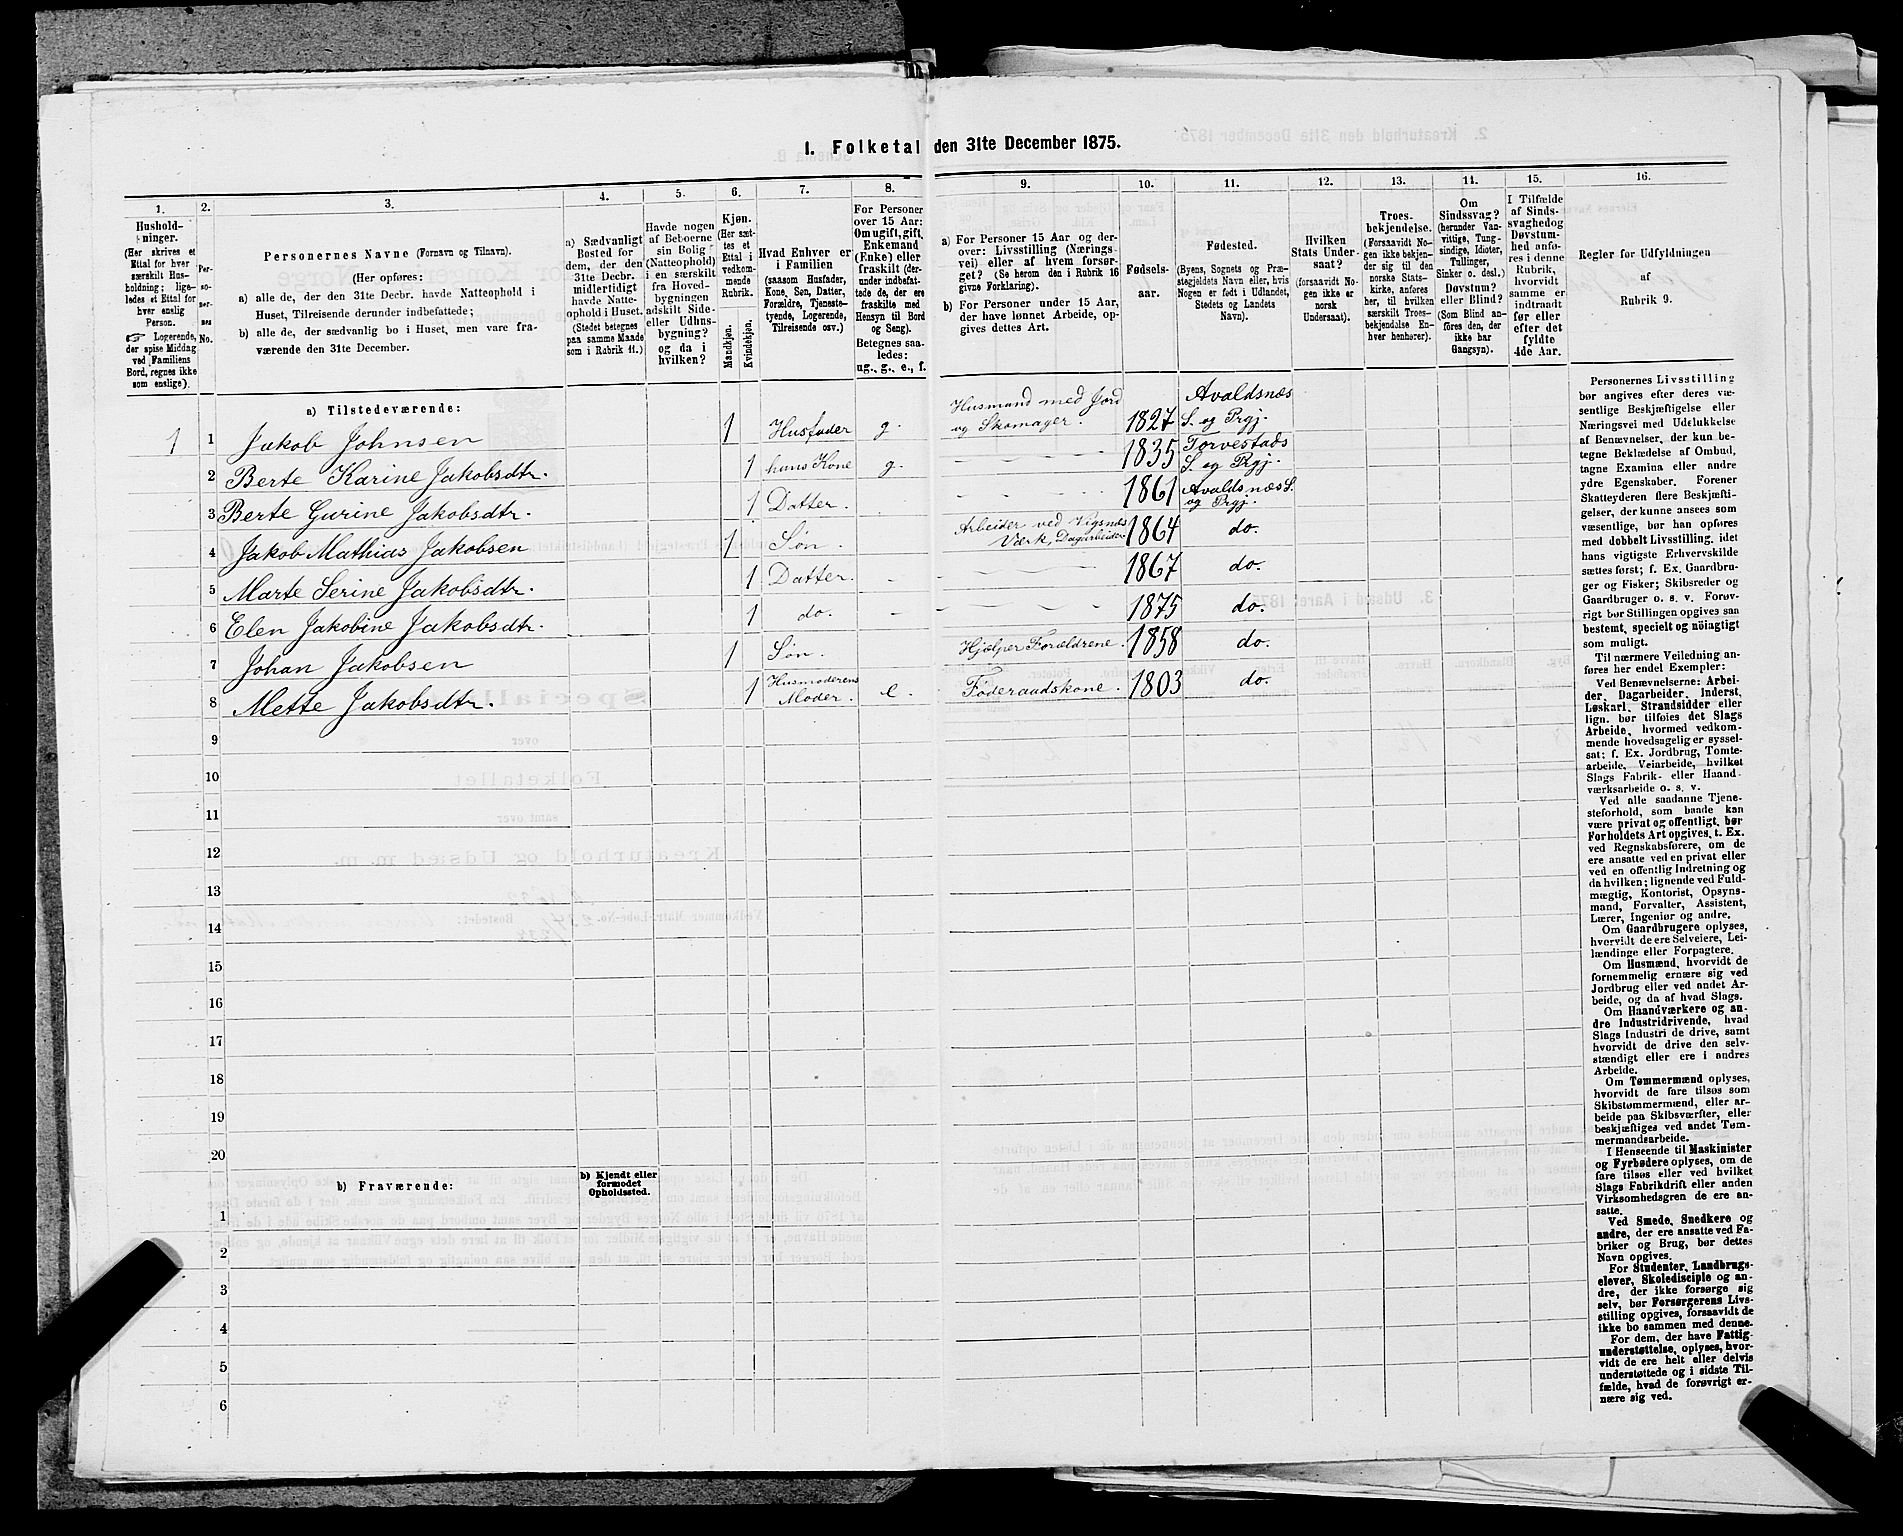 1. Folketal den 31te December 1875.
1.
Hushold-
ninger.
(Her skrives et
Ettal for hver
særskilt Hus-
holdning; lige-
ledes et Ettal for
hver enslig
Person.
☞ Logerende,
der spise Middag
ved Familiens
Bord, regnes ikke
som enslige).
2.
Per-
so-
ner-
nes
No.
3.
Personernes Navne (Fornavn og Tilnavn).
(Her opføres:
a) alle de, der den 31te Decbr. havde Natteophold i
Huset, Tilreisende derunder indbefattede;
b) alle de, der sædvanlig bo i Huset, men vare fra-
værende den 31te December.
4.
a) Sædvanligt
Bosted for
dem, der den
31te Decbr.
midlertidigt
havde Natte-
ophold i Huset.
(Stedet betegnes
paa samme Maade
som i Rubrik 11.)
5.
Havde nogen
af Beboerne
sin Bolig
(Natteophold)
i en særskilt
fra Hoved-
bygningen
adskilt Side-
eller Udhus-
bygning?
og da i
hvilken?
6.
Kjøn.
(Her sæt-
tes et
Ettal i
vedkom-
mende
Rubrik.
Mandkjøn.
Kvindekjøn.
7.
Hvad Enhver er
i Familien
(saasom Husfader,
Kone, Søn, Datter,
Forældre, Tjeneste-
tyende, Logerende,
Tilreisende osv.)
8.
For Personer
over 15 Aar:
Om ugift, gift,
Enkemand
(Enke) eller
fraskilt (der-
under indbefat-
tede de, der ere
fraskilte med
Hensyn til Bord
og Seng).
Betegnes saa-
ledes:
ug., g., e., f.
9.
a) For Personer 15 Aar og der-
over: Livsstilling (Nærings-
vei) eller af hvem forsør-
get? (Se herom den i Rubrik 16
givne Forklaring).
b) For Personer under 15 Aar,
der have lønnet Arbeide, op-
gives dettes Art.
10.
Fødsels-
aar.
11.
Fødested.
(Byens, Sognets og Præ-
stegjeldets Navn eller, hvis
Nogen er født i Udlandet,
Stedets og Landets
Navn).
12.
Hvilken
Stats Under-
saat?
(forsaavidt No-
gen ikke er
norsk
Undersaat).
13.
Troes-
bekjendelse.
(Forsaavidt No-
gen ikke bekjen-
der sig til den
norske Stats-
kirke, anføres
her, til hvilken
særskilt Troes-
bekjendelse En-
hver henhører).
14.
Om
Sindssvag?
(herunder Van-
vittige, Tung-
sindige, Idioter,
Tullinger,
Sinker o. desl.)
Døvstum?
eller Blind?
(Som Blind an-
føres den, der
ikke har
Gangsyn).
15.
I Tilfælde
af Sinds-
svaghed og
Døvstum-
hed anfø-
res i denne
Rubrik,
hvorvidt
samme er
indtraadt
før eller
efter det
fyldte
4de Aar.
16.
Regler for Udfyldningen
af
Rubrik 9.
a) Tilstedeværende:
1 1 Jakob Johnsen 1 Husfader g. Husmand med Jord og Skomager. 1827 Avaldsnæs S. og Prgj.
2 Berte Karine Jakobsdtr. 1 hans Kone g. 1835 Torvestads S. og Prgj.
3 Berte Gurine Jakobsdtr. 1 Datter. 1861 Avaldsnæs S. og Prgj.
4 Jakob Mathias Jakobsen 1 Søn. Arbeider ved Vigsnæs Værk, Dagarbeider 1864 do.
5 Marte Serine Jakobsdtr. 1 Datter. 1867 do.
6 Elen Jakobine Jakobsdtr. 1 do. 1875 do.
7 Johan Jakobsen 1 Søn. Hjælper Forældrene. 1858 do.
8 Mette Jakobsdtr. 1 Husmoderens Moder. e. Føderaadskone. 1803 do.
9
10
11
12
13
14
15
16
17
18
19
20
b) Fraværende:
b) Kjendt eller
formodet
Opholdssted.
1
2
3
4
5
6
Personernes Livsstilling
bør angives efter deres væ-
sentlige Beskjæftigelse eller
Næringsvei med Udelukkelse
af Benævnelser, der kun be-
tegne Beklædelse af Ombud,
tagne Examina eller andre
ydre Egenskaber. Forener
Skatteyderen flere Beskjæfti-
gelser, der kunne ansees som
væsentlige, bør han opføres
med dobbelt Livsstilling, idet
hans vigtigste Erhvervskilde
sættes først; f. Ex. Gaardbru-
ger og Fisker; Skibsreder og
Gaardbruger o. s. v. Forøv-
rigt bør Stillingen opgives saa
bestemt, specielt og nöiagtigt
som muligt.
Til nærmere Veiledning an-
føres her endel Exempler:
Ved Benævnelserne: Arbei-
der, Dagarbeider, Inderst,
Løskarl, Strandsidder eller
lign. bør tilføies det Slags
Arbeide, hvormed vedkom-
mende hovedsagelig er syssel-
sat; f. Ex. Jordbrug, Tomte-
arbeide, Veiarbeide, hvilket
Slags Fabrik- eller Haand-
værksarbeide o. s. v.
Ved alle saadanne Tjene-
steforhold, som baade kan
være privat og offentligt, bør
Forholdets Art opgives, t. Ex.
ved Regnskabsførere, om de
ere ansatte ved en privat eller
ved en offentlig Indretning og
da hvilken; lignende ved Fuld-
mægtig, Kontorist, Opsyns-
mand, Forvalter, Assistent,
Lærer, Ingeniør og andre.
Om Gaardbrugere oplyses,
hvorvidt de ere Selveiere, Lei-
lændinge eller Forpagtere.
Om Husmænd, hvorvidt de
fornemmelig ernære sig ved
Jordbrug eller ved andet Ar-
beide, og da af hvad Slags.
Om Haandværkere og an-
dre Industridrivende, hvad
Slags Industri de drive, samt
hvorvidt de drive den selv-
stændigt eller ere i andres
Arbeide.
Om Tømmermænd oplyses,
hvorvidt de fare tilsøs som
Skibstømmermænd, eller ar-
beide paa Skibsværfter, eller
beskjæftiges ved andet Tøm-
mermandsarbeide.
I Henseende til Maskinister
og Fyrbødere oplyses, om de
fare tilsøs eller ved hvilket
Slags Fabrikdrift eller anden
Virksomhedsgren de ere an-
satte.
Ved Smede, Snedkere og
andre, der ere ansatte ved Fa-
briker og Brug, bør dettes
Navn opgives.
For Studenter, Landbrugs-
elever, Skoledisciple og an-
dre, der ikke forsørge sig
selv, bør Forsørgerens Livs-
stilling opgives, forsaavidt de
ikke bo sammen med denne.
For dem, der have Fattig-
understøttelse, oplyses, hvor-
vidt de ere helt eller delvis
understøttede og i sidste Til-
fælde, hvad de forøvrigt er-
nære sig ved.